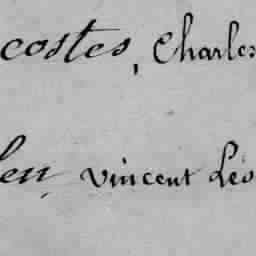 costes, Charles
len, Vincent Léo